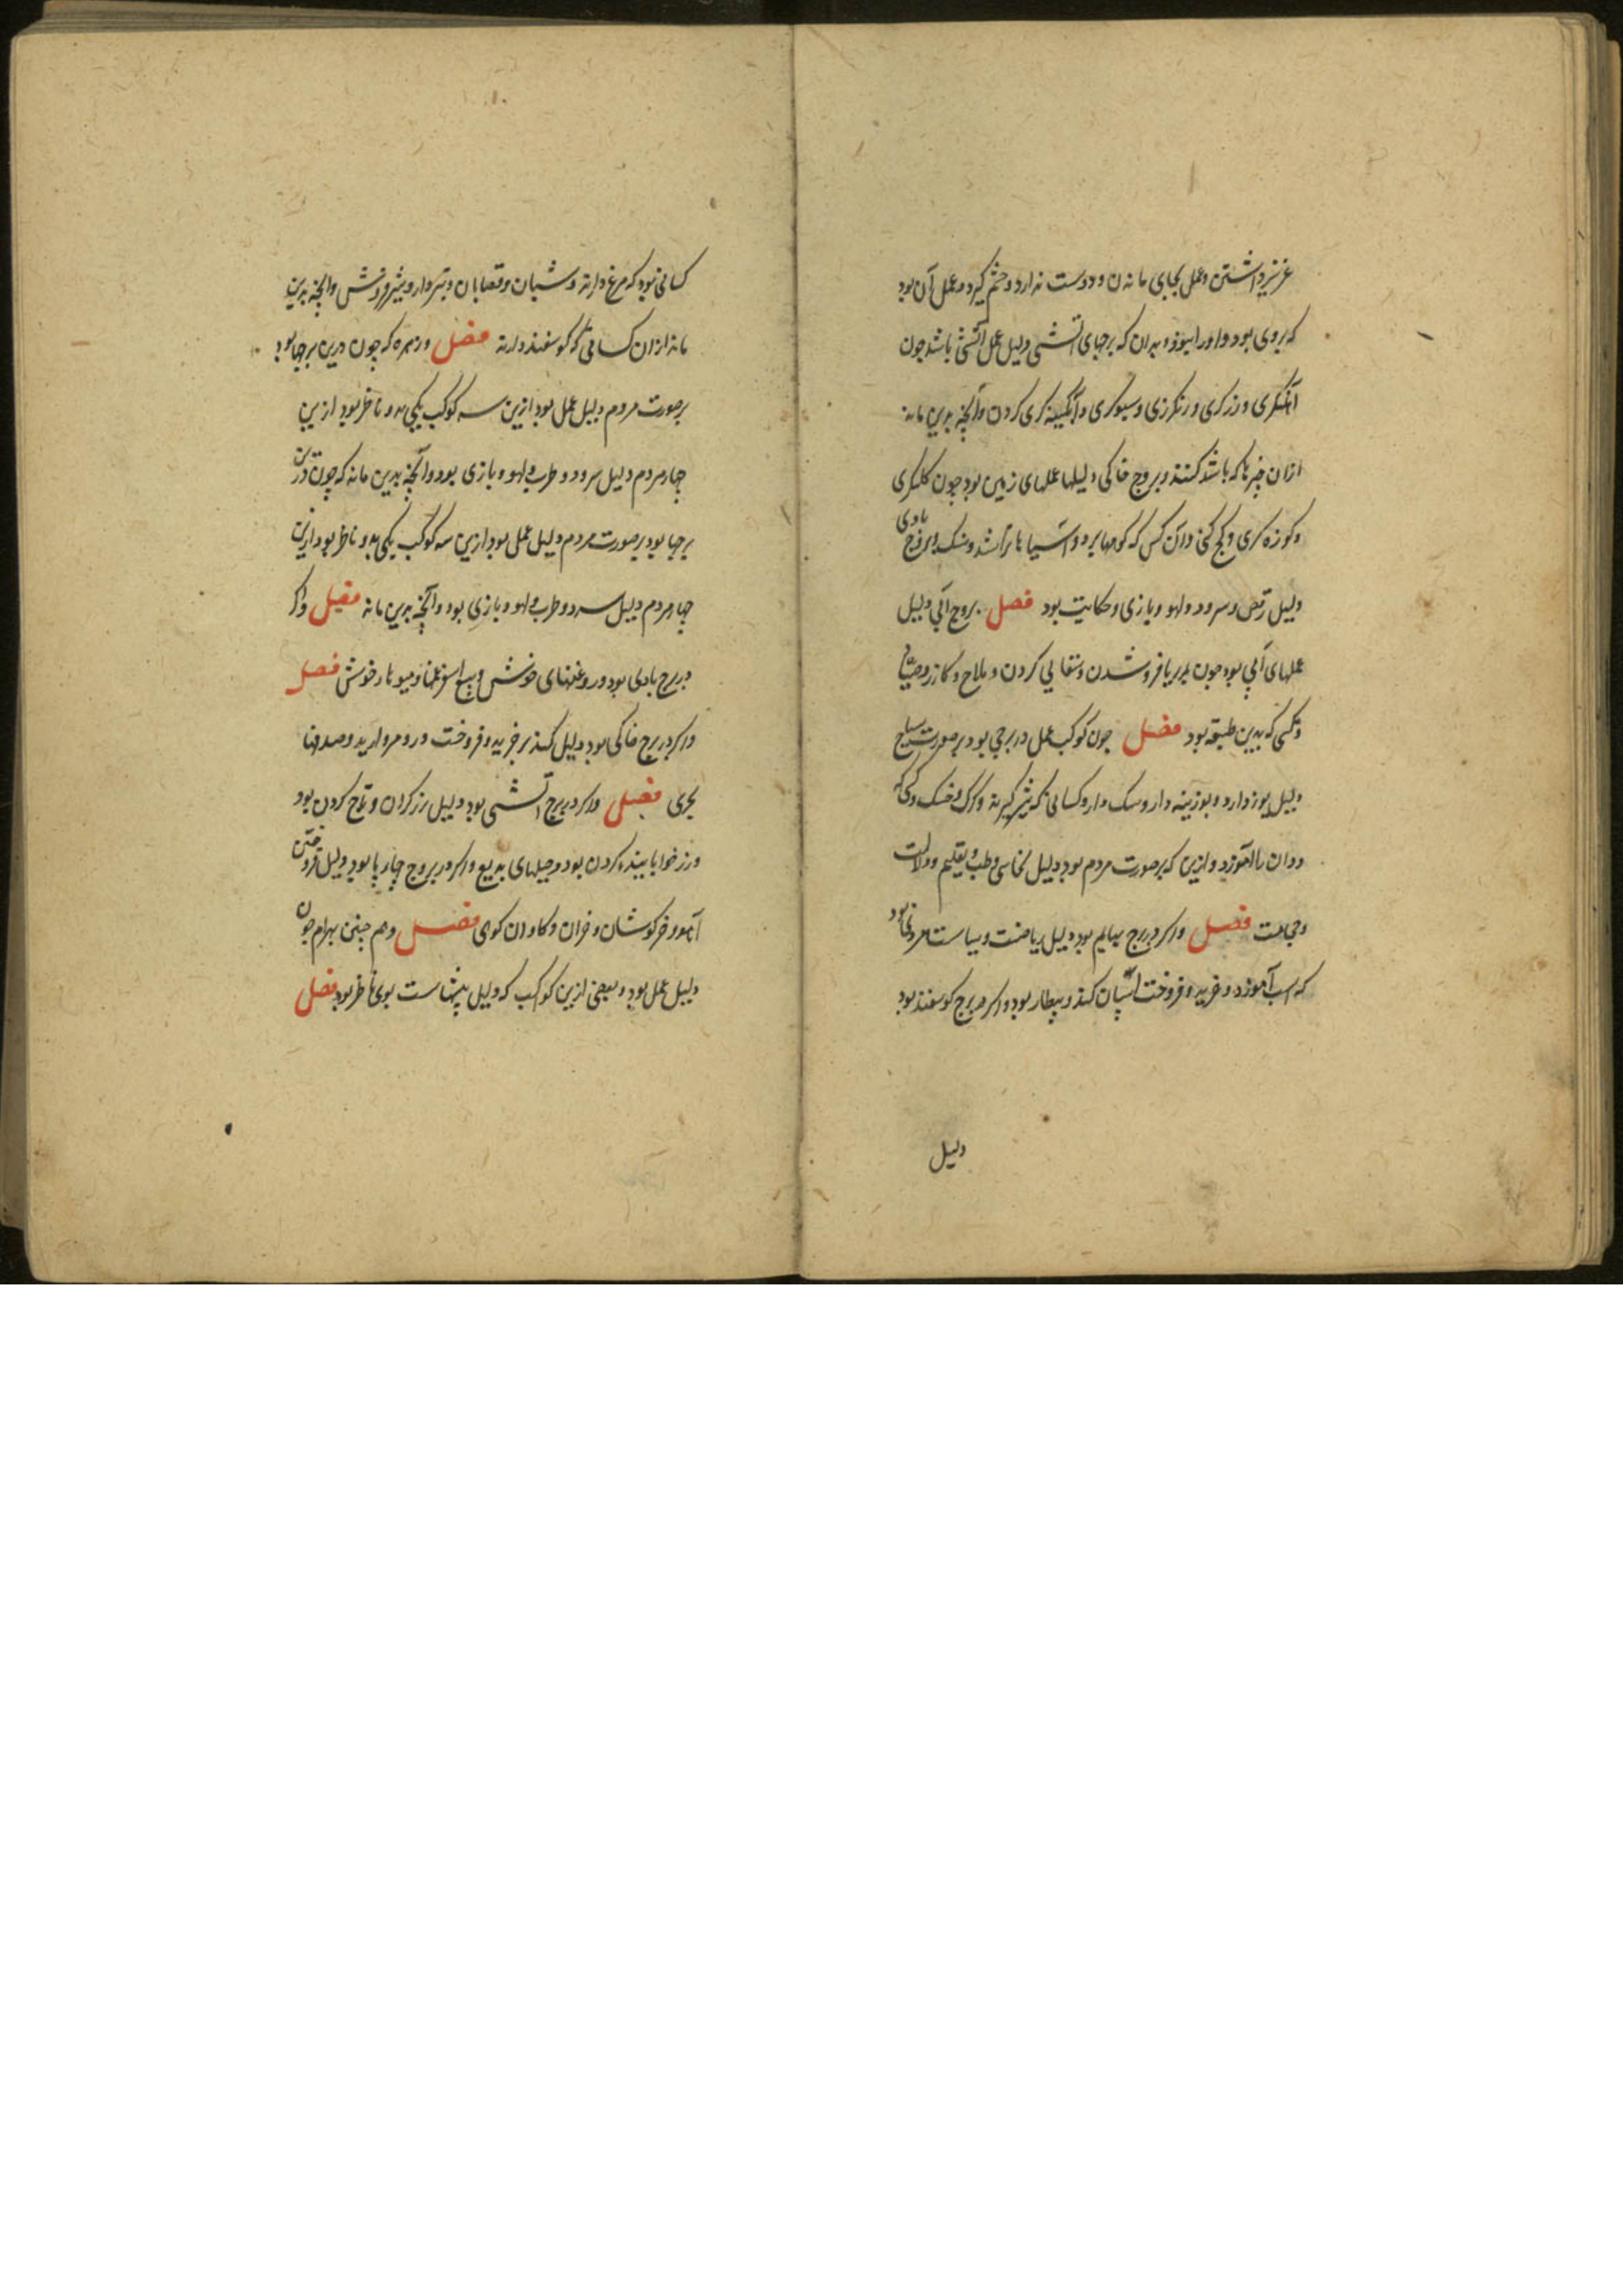 عزیز داشتن و عمل بجای ماندن و دوست ندارد و خشم گیرد و عمل آن بود
که بروی بود و او را بسوزد و بدان که برجهای آتشی دلیل عمل آتشی باشد چون
آهنگری و زرگری و رنگرزی و سبوگری و آبگینه گری کردن و آنچه بدین ماند
ازان چیزها که باتش کنند و بروج خاکی دلیلها عملهای زمین بود چون گلگری
و کوزه گری و گچ کنی و آن کس که کوهها برد و آسیاها تراشد و سنک و بروج بادی
دلیل رقص و سرود و لهو و بازی و حکایت بود فصل بروج آبی دلیل
عملهای آبی بود چون بدریا فرو شدن و سقایی کردن و ملاح و گازر و صیاد
و کسی که بدین طبقه بود فصل چون کوکب عمل در برجی بود بر صورت سباع
دلیل یوز دارد و بوزینه دار و سک دار و کسانی که شیر گیرند و کرک و خسک و کسی که
ددان را آموزد و ازین که بر صورت مردم بود دلیل نخاسی و طب و تعلیم و دلالت
و حجامت فصل و اگر در برج بهایم بود دلیل ریاضت و سیاست بود
که اسب آموزد و خرید و فروخت اسبان کند و بیطار بود و اگر در برج کوسفند بود
دلیل
کسانی بود که مرغ دارند و شبان و قصابان و شیرفروش و آنچه بدین
ماند ازان کسانی که کوسفند دارند فصل و زهره که چون درین برجها بود
بر صورت مردم دلیل عمل بود ازین سه کوکب یکی بدو ناظر بود ازین
چهار مردم دلیل سرود و طرب و لهو و بازی بود و آنچه بدین ماند که چون درین
برجها بود بر صورت مردم دلیل عمل بود ازین سه کوکب یکی بدو ناظر بود ازین
چهار مردم دلیل سرود و طرب و لهو و بازی بود و آنچه بدین ماند فصل و اگر
در برج بادی بود و روغنهای خوش و بیع اسپرغمها و میوها خوش فصل
و اگر در برج خاکی بود دلیل کند بر خرید و فروخت در و مروارید و صدفها
بحری فصل و اگر در برج آتشی بود دلیل زر کردن و تاج کردن بود
و زر خوابانیده کردن بود و حیلهای بدیع و اگر در بروج چهار پا بود دلیل فروختن
آهو و خرکوشان و خران و کاوان کوهی فصل و هم چنین بهرام چون
دلیل عمل بود و بعضی ازین کواکب که دلیل پیشهاست بوی ناظر بود فصل